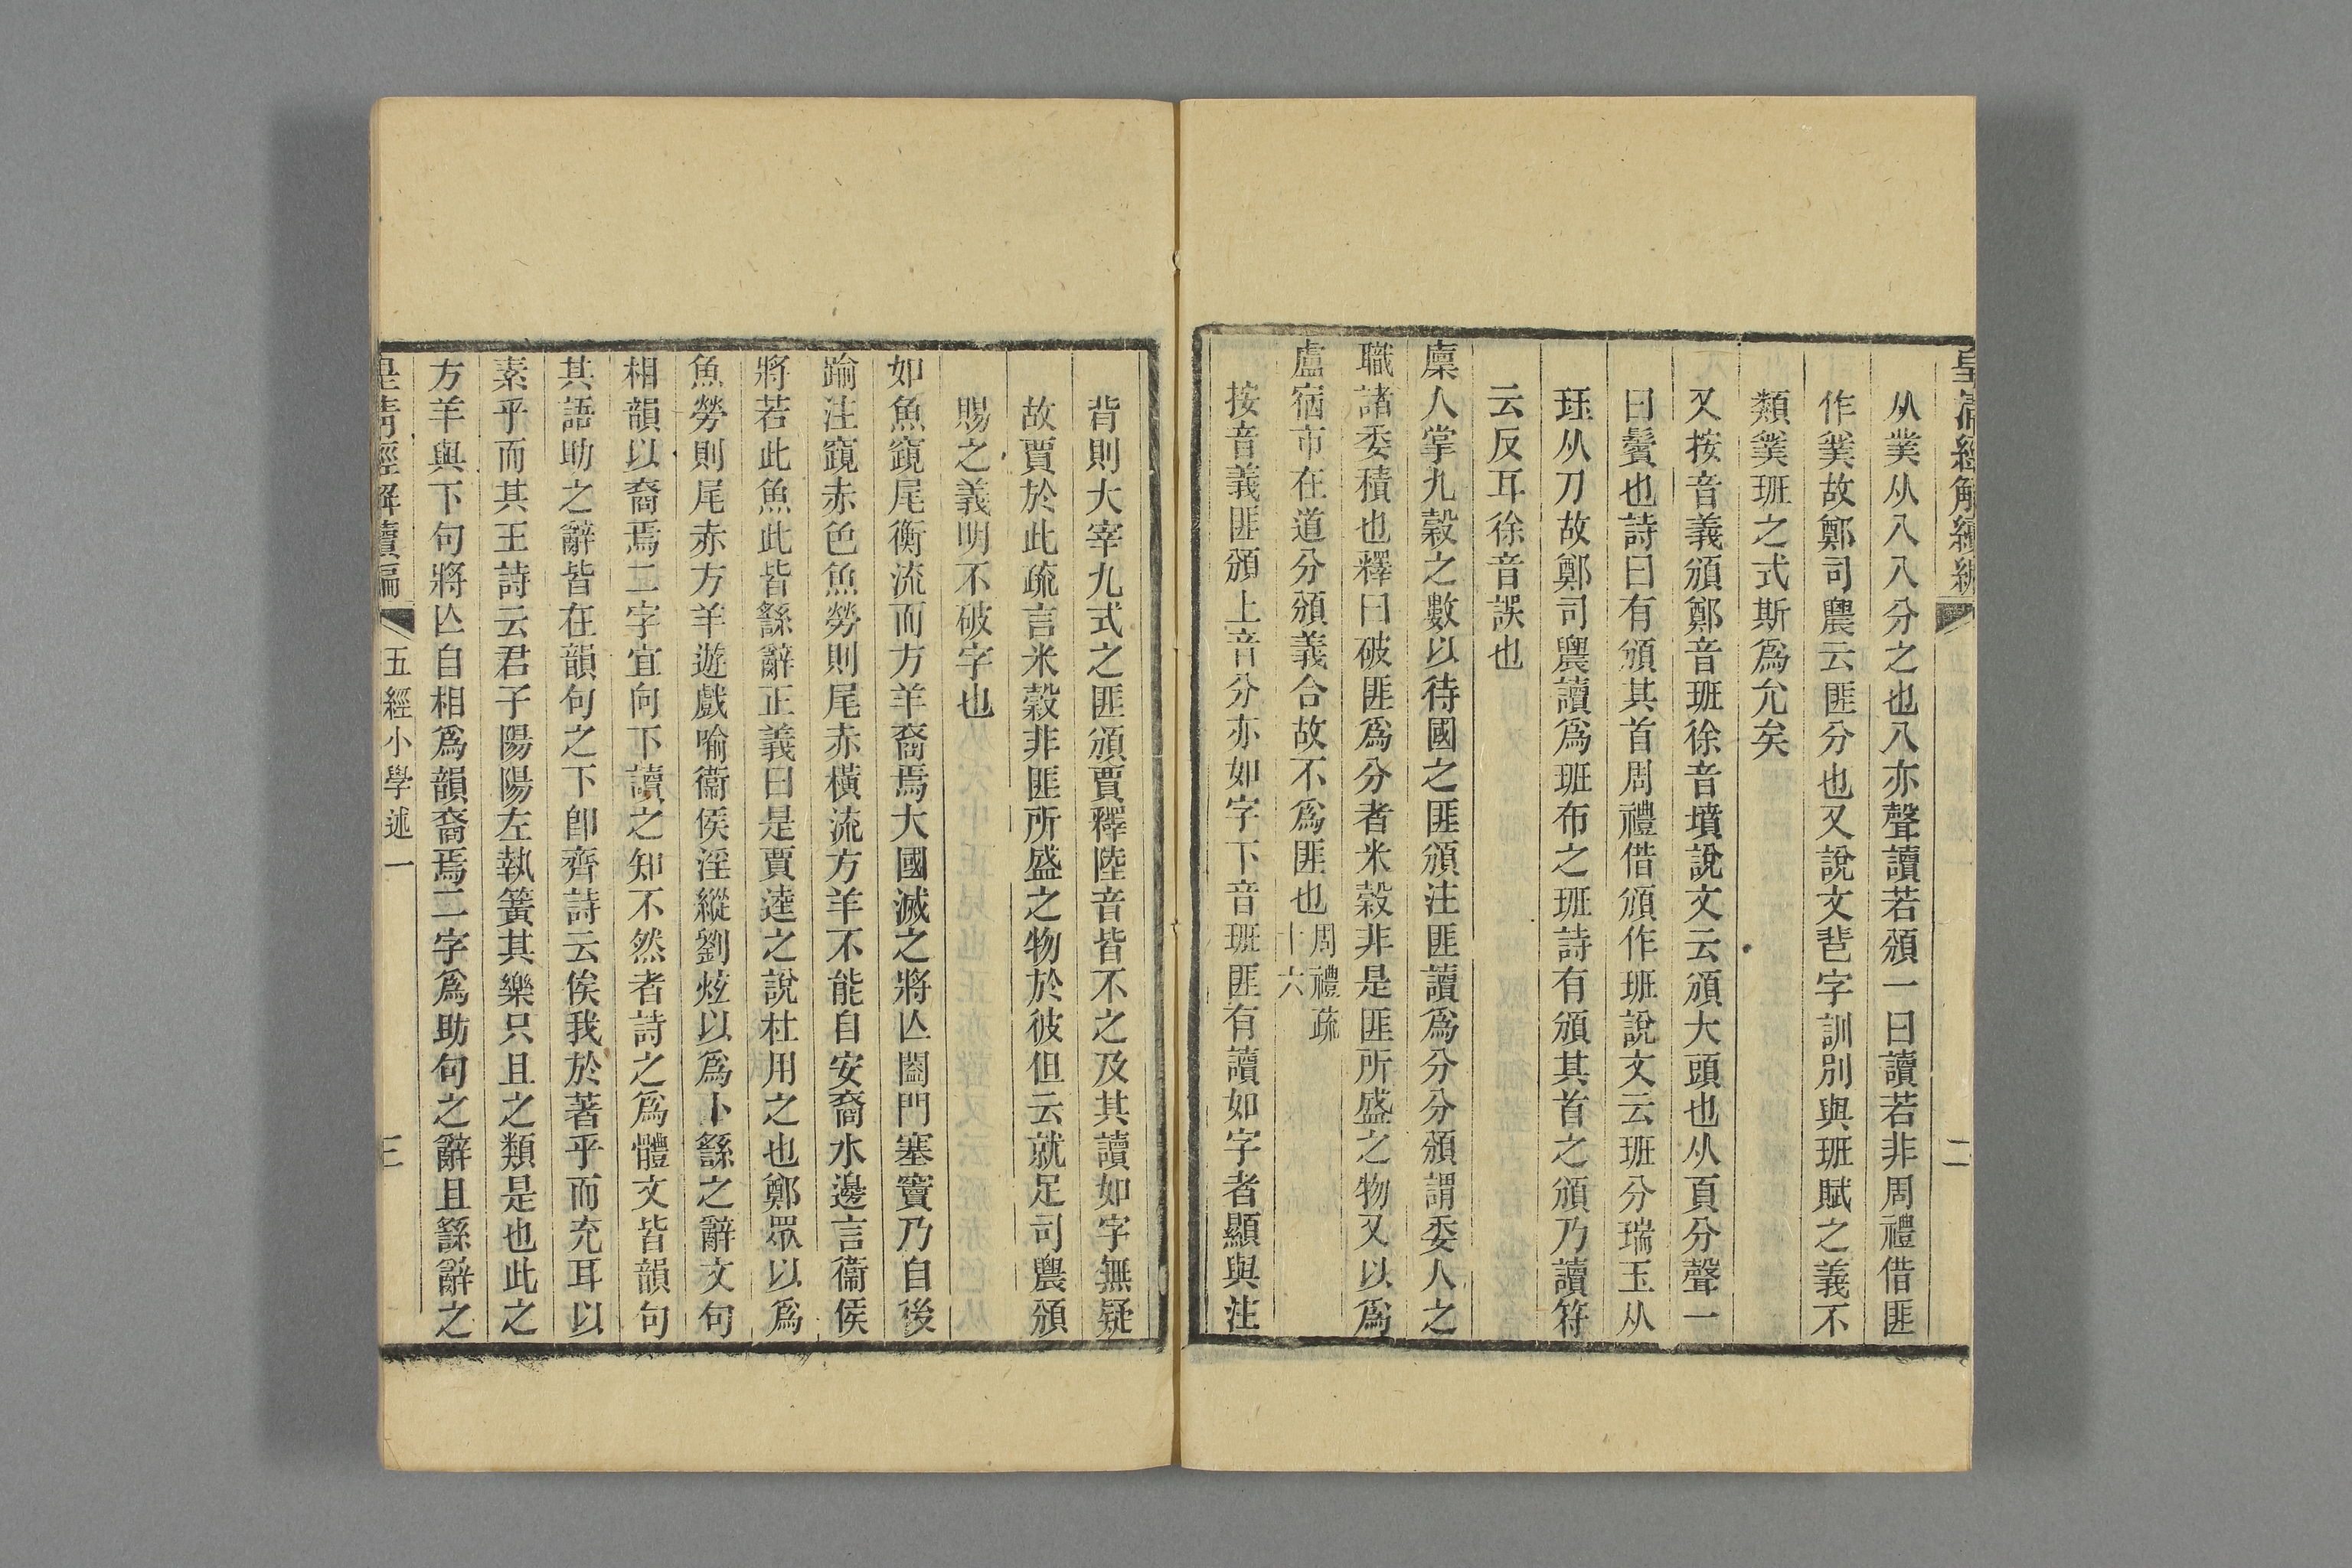 皇清經解續編 二
从菐从八八分之也八亦聲讀若頒一曰讀若非周禮借匪
作㒒故鄭司農云匪分也又說文辬字訓別與班賦之義不
類㒒班之式斯爲允矣
又按音義頒鄭音班徐音墳說文云頒大頭也从頁分聲一
曰鬢也詩曰有頒其首周禮借頒作班說文云班分瑞玉从
珏从刀故鄭司農讀爲班布之班詩有頒其首之頒乃讀符
云反耳徐音誤也
廩人掌九穀之數以待國之匪頒注匪讀爲分分頒謂委人之
職諸委積也釋曰破匪爲分者米穀非是匪所盛之物又以爲
盧宿市在道分頒義合故不爲匪也周禮疏十六
按音義匪頒上音分亦如字下音班匪有讀如字者顯與注
背則大宰九式之匪頒賈釋陸音皆不之及其讀如字無疑
故賈於此疏言米穀非匪所盛之物於彼但云就足司農頒
賜之義明不破字也
如魚竀尾衡流而方羊裔焉大國滅之將亾闔門塞竇乃自後
踰注竀赤色魚勞則尾赤橫流方羊不能自安裔水邊言衞侯
將若此魚此皆繇辭正義曰是賈逵之說杜用之也鄭眾以爲
魚勞則尾赤方羊遊戲喻衞侯淫縱劉炫以爲卜繇之辭文句
相韻以裔焉二字宜向下讀之知不然者詩之爲體文皆韻句
其語助之辭皆在韻句之下卽齊詩云俟我於著乎而充耳以
素乎而其王詩云君子陽陽左執簧其樂只且之類是也此之
方羊與下句將亾自相爲韻裔焉二字爲助句之辭且繇辭之
皇清經解續編 五經小學述一 三